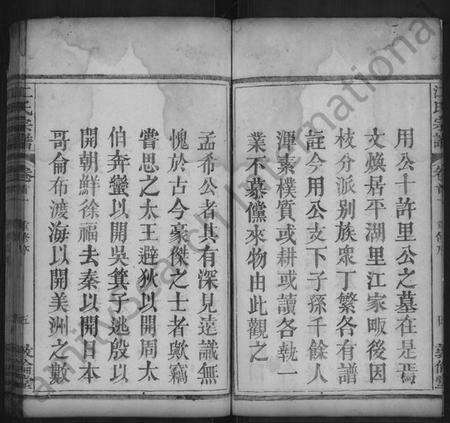 用公十許里公之墓在是焉
文煥居平湖里江家畈後因
枝分派別族衆丁繁各有譜
証今用公支下子孫千餘人
渾素樸質或耕或讀各執一
業不慕儻來物由此觀之
孟希公者其有深見遠識無
愧於古今豪傑之士者歟竊
嘗思之太王避狄以開周太
伯奔蠻以開吳箕子逃殷以
開朝鮮徐福去秦以開日本
哥侖布渡海以開美洲之數
氏宗譜
敦倫堂